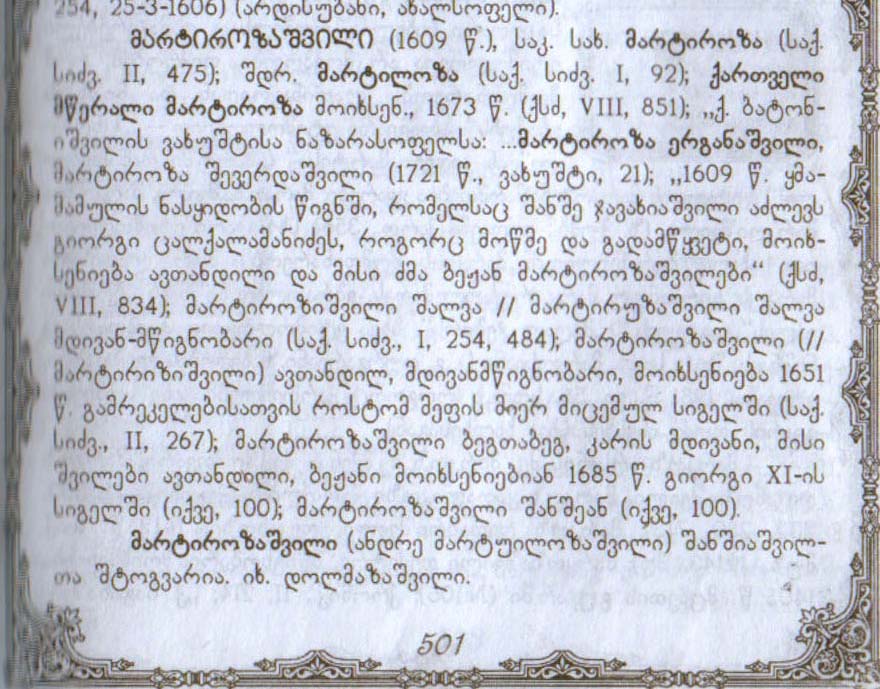 254, 25-3-1606) (არდისუბანი, ახალსოფელი).
მარტიროზაშვილი (1609 წ.), საკ. სახ. მარტიროზა (საქ.
სიძვ. II, 475); შდრ. მარტილოზა (საქ. სიძვ. I, 92); ქართველი
მწერალი მარტიროზა მოიხსენ., 1673 წ. (ქსძ, VIII, 851); „ქ. ბატონ-
იშვილის ვახუშტისა ნაზარასოფელსა: ...მარტიროზა ერგანაშვილი,
მარტიროზა შევერდაშვილი (1721 წ., ვახუშტი, 21); „1609 წ. ყმა-
მამულის ნასყიდობის წიგნში, რომელსაც შანშე ჯავახიაშვილი აძლევს
გიორგი ცალქალამანიძეს, როგორც მოწმე და გადამწყვეტი, მოიხ-
სენიება ავთანდილი და მისი ძმა ბეჟან მარტიროზაშვილები“ (ქსძ,
VIII, 834); მარტიროზიშვილი შალვა // მარტირუზაშვილი შალვა
მდივან-მწიგნობარი (საქ. სიძვ., I, 254, 484); მარტიროზაშვილი (//
მარტირიზიშვილი) ავთანდილ, მდივანმწიგნობარი, მოიხსენიება 1651
წ. გამრეკელებისათვის როსტომ მეფის მიერ მიცემულ სიგელში (საქ.
სიძვ., II, 267); მარტიროზაშვილი ბეგთაბეგ, კარის მდივანი, მისი
შვილები ავთანდილი, ბეჟანი მოიხსენიებიან 1685 წ. გიორგი XI-ის
სიგელში (იქვე, 100); მარტიროზაშვილი შანშეან (იქვე, 100).
მარტიროზაშვილი (ანდრე მარტუილოზაშვილი) შანშიაშვილ-
თა შტოგვარია. იხ. დოლმაზაშვილი.
501